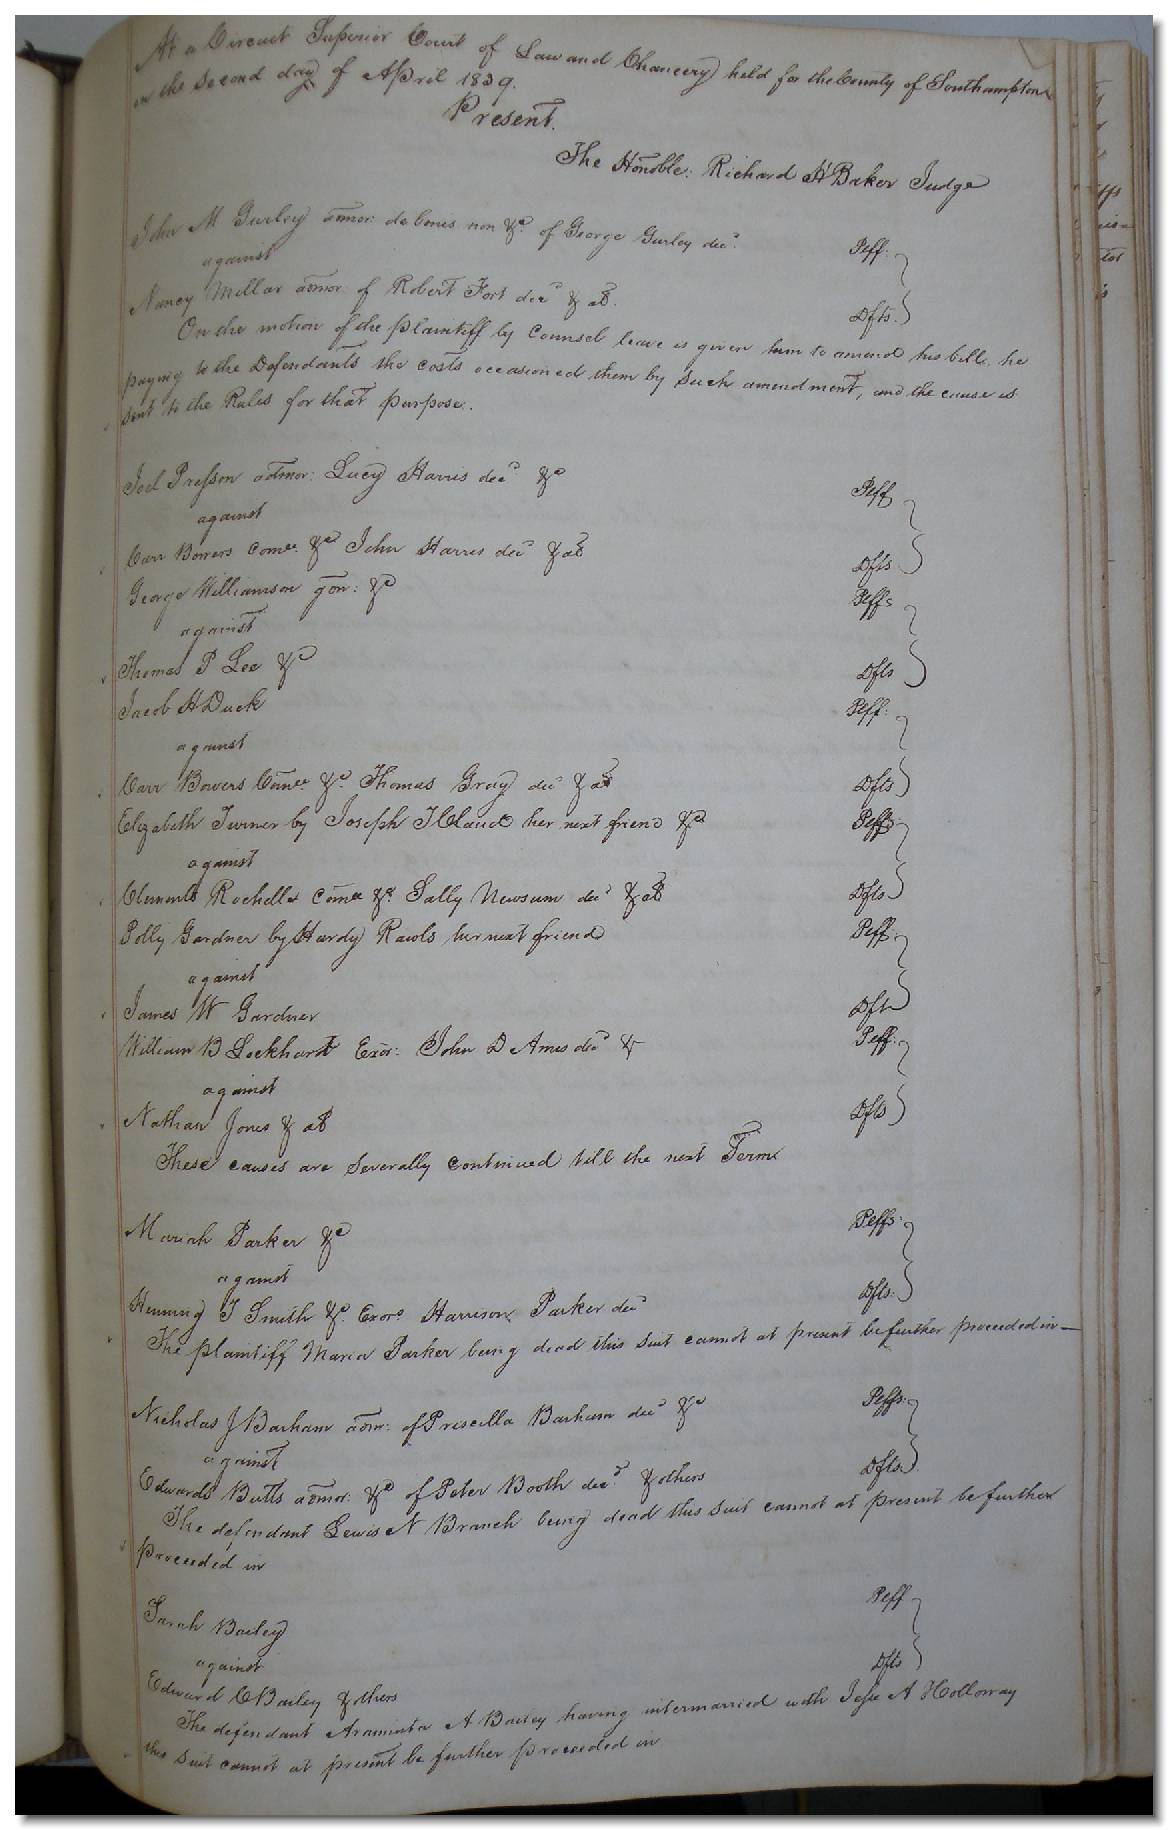 At a Circuit Superior Court of Law and Chancery held for the County of Southampton
on the Second day of April 1839.
Present.
The Honoble: Richard H Baker Judge
John M Gurley admor: de bonis non &c. of George Gurley decd.
Peff:
against
Nancy Millar admor: of Robert Fort decd & als.
Dfts.
On the motion of the plaintiff by Counsel leave is given him to amend his bill, he
paying to the Defendants the costs occasioned them by such amendment, and the cause is
sent to the Rules for that purpose.
Joel Presson admor: Lucy Harris decd &c
Peff
against
Carr Bowers Comee. &c John Harris decd & als
Dfts
George Williamson gdn: &c
Peffs
against
Thomas P Lee &c
Dfts
Jacob H Duck
Peff:
against
Carr Bowers Comee &c. Thomas Gray decd & als
Dfts
Elizabeth Turner by Joseph T Claud her next friend &c
Peffs
against
Clements Rochelle Comee &c. Sally Newsum decd & als
Dfts
Polly Gardner by Hardy Rawls her next friend
Peff.
against
James W Gardner
Dft
William B Lockhart Exor: John D Ames decd &
Peff.
against
Nathan Jones & als
Dfts
These causes are Severally continued till the next Term
Mariah Parker &c
Peffs.
against
Henning T Smith &c. Exors Harrison Parker decd
Dfts.
The plaintiff Maria Parker being dead this suit cannot at present be further proceeded in—
Nicholas J Barham admr: of Priscilla Barham decd &c
Peffs.
against
Edwards Butts admor: &c of Peter Booth decd & others
Dfts.
The defendant Lewis N Branch being dead this suit cannot at present be further
proceeded in
Sarah Bailey
Peff
against
Edward C Bailey & others
Dfts
The defendant Araminta A Bailey having intermarried with Jesse A Holloway
this suit cannot at present be further proceeded in